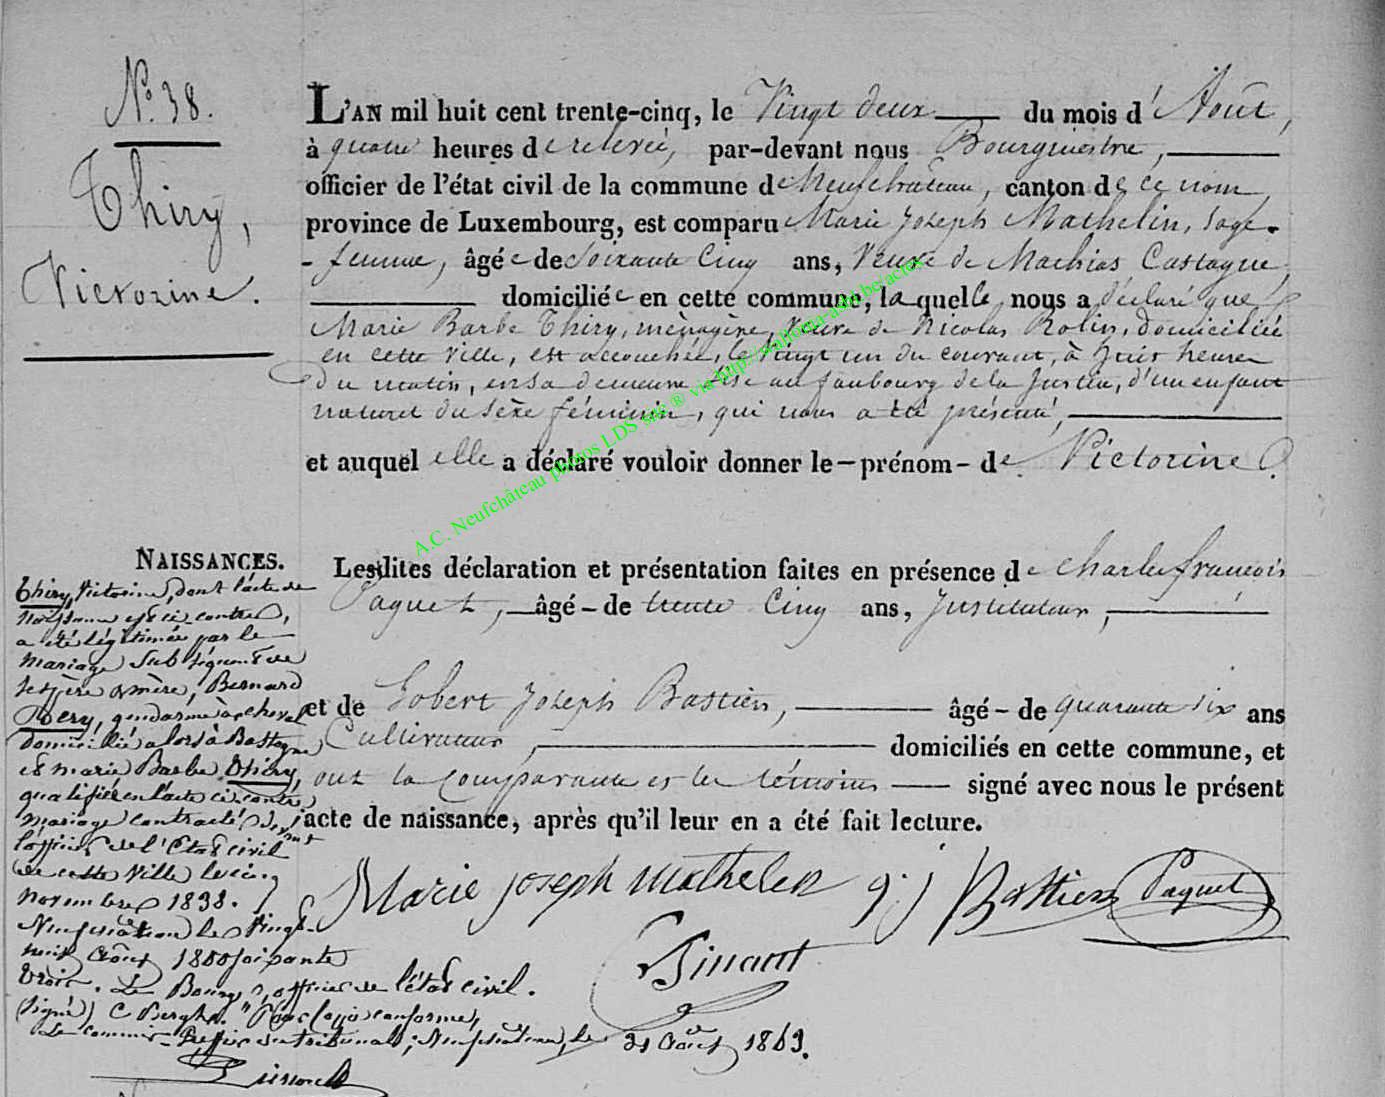 N.º 38.
Thiry,
Victorine.
L'AN mil huit cent trente-cinq, le Vingt deux du mois d'Août,
à quatre heures de relevée, par-devant nous Bourgmestre,
officier de l'état civil de la commune de Neufchâteau, canton de ce nom,
province de Luxembourg, est comparu Marie Joseph Mathelin, sage-
-femme, âgée de soixante Cinq ans, Veuve de Mathias Castagne,
domiciliée en cette commune, laquelle nous a déclaré que
Marie Barbe Thiry, ménagère, veuve de Nicolas Rolin, domiciliée
en cette ville, est accouchée, le vingt un du courant, à huit heures
du matin, en sa demeure sise au faubourg de la Justice, d'un enfant
naturel du sexe féminin, qui nous a été présenté,
et auquel elle a déclaré vouloir donner le-prénom-de Victorine.
Lesdites déclaration et présentation faites en présence de Charles François
Paquet, âgé-de trente Cinq ans, Instituteur,
et de Gobert Joseph Bastien, âgé-de quarante six ans
Cultivateur, domiciliés en cette commune, et
ont la comparante et les témoins signé avec nous le présent
acte de naissance, après qu'il leur en a été fait lecture.
Marie joseph mathelen g. j Bastien Paquet
NAISSANCES.
Thiry, Victorine, dont l'acte de
naissance est ci contre,
a été légitimée par le
mariage subséquent de
ses père & mère, Bernard
gendarme à cheval
domicilié alors à Bastogne
et marie Barbe Thiry,
qualifiée en l'acte ci contre,
mariage contracté devant
l'officier de l'état civil
de cette ville le cinq
novembre 1838.
Neufchâteau le vingt-
huit août 1800 soixante
trois. Le Bourg., officier de l'état civil.
(signé) C Pour copie conforme,
Le commis-greffier du tribunal, Neufchâteau, le 31 août 1863.
A.C. Neufchâteau photos LDS snc ® via http://wallonia-asbl.be/actes